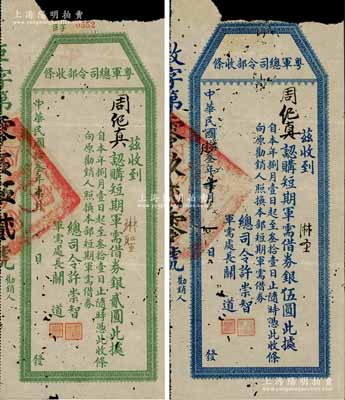 上海陽明拍賣
條收部令司總軍粵
茲收到
周佗真 認購短期軍需借券銀貳圓此據
自本年捌月壹日起至叁拾壹日止隨時憑此收條
向原勸銷人照換本部短期軍需借券
總司令許崇智
軍需處長關道
中華民國
日
發
勸銷人
上海陽明拍賣
條收部令司總軍粵
茲收到
周佗真 認購短期軍需借券銀伍圓此據
自本年捌月壹日起至叁拾壹日止隨時憑此收條
向原勸銷人照換本部短期軍需借券
總司令許崇智
軍需處長關道
中華民國
日
發
勸銷人